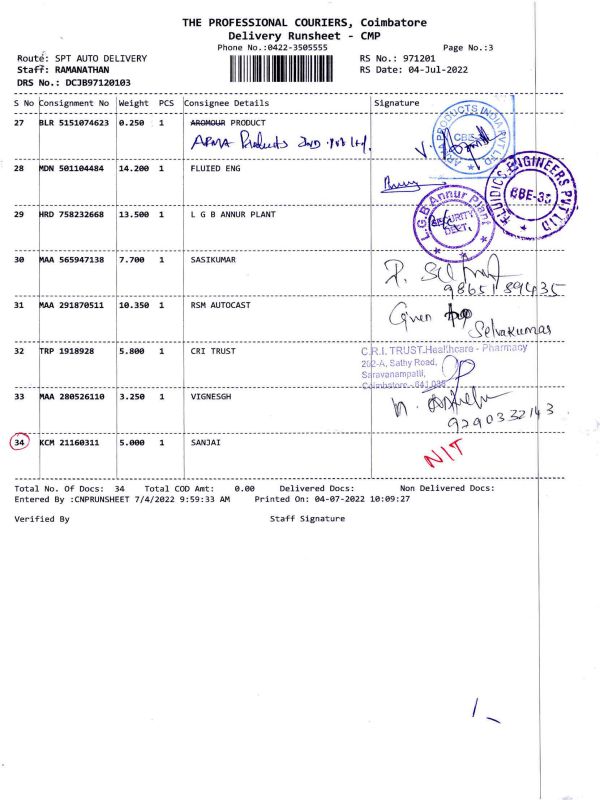 THE PROFESSIONAL COURIERS, Coimbatore
Delivery Runsheet - CMP
Phone No.:0422-3505555 Page No.:3
Route: SPT AUTO DELIVERY RS No.: 971201
Staff: RAMANATHAN RS Date: 04-Jul-2022
DRS No.: DCJB97120103
S No Consignment No Weight PCS Consignee Details Signature
27 BLR 5151074623 0.250 1 AROMOUR PRODUCT
ARMA Products IND PVT Ltd.
ARMA PRODUCTS INDIA PVT LTD CBE
28 MDN 501104484 14.200 1 FLUIED ENG
FLUIDICS ENGINEERS PVT LTD CBE-35
29 HRD 758232668 13.500 1 L G B ANNUR PLANT
L.G.B Annur Plant SECURITY DEPT.
30 MAA 565947138 7.700 1 SASIKUMAR
31 MAA 291870511 10.350 1 RSM AUTOCAST
Given
Selvakumar
32 TRP 1918928 5.800 1 CRI TRUST
C.R.I. TRUST Healthcare - Pharmacy
202-A, Sathy Road,
Saravanampatti,
Coimbatore - 641 035
33 MAA 280526110 3.250 1 VIGNESGH
9290332143
34 KCM 21160311 5.000 1 SANJAI
NIT
Total No. Of Docs: 34 Total COD Amt: 0.00 Delivered Docs: Non Delivered Docs:
Entered By :CNPRUNSHEET 7/4/2022 9:59:33 AM Printed On: 04-07-2022 10:09:27
Verified By Staff Signature